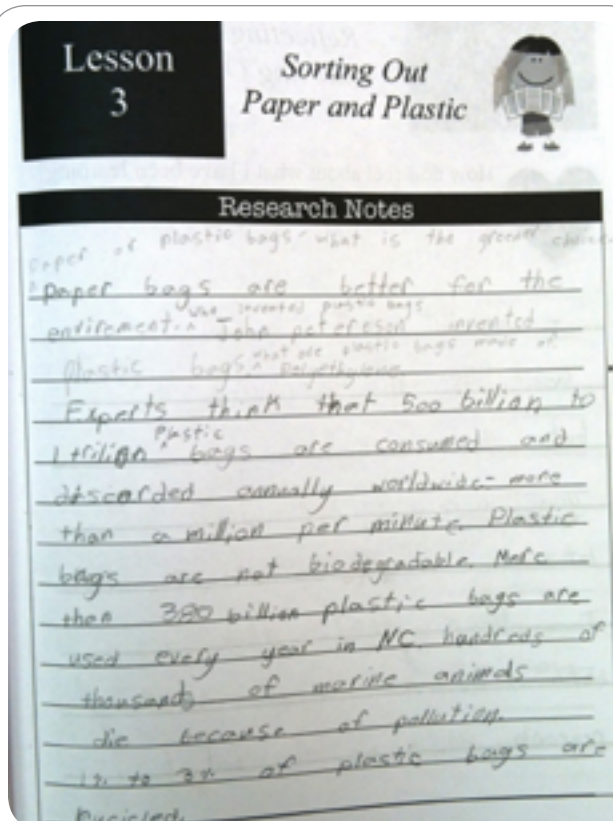 Lesson
3
Sorting Out
Paper and Plastic
Research Notes
paper or plastic bags - what is the greener choice
paper bags are better for the
envirement. who invented plastic bags
John petereson invented
plastic bags. what are plastic bags made of
Polyethylene
Experts think that 500 billion to
1 trilion plastic bags are consumed and
discarded annually worldwide - more
than a million per minute. Plastic
bags are not biodegradable. More
then 380 billion plastic bags are
used every year in NC. handreds of
thousands of marine animals
die because of pollution.
1% to 3% of plastic bags are